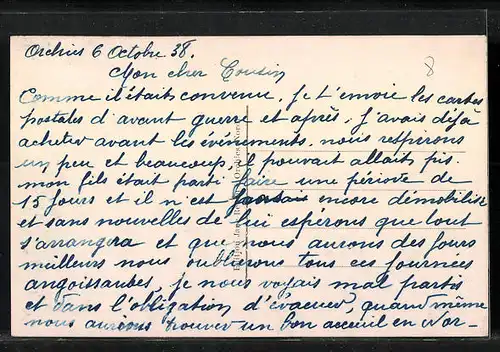 Orchies 6 Octobre 38.
Mon cher Cousin
Comme il était convenue, je t'envoie les cartes
postales d'avant guerre et après, j'avais déjà
acheter avant les évènements. nous respirons
un peu et beaucoup, il pouvait allait pis.
mon fils était parti faire une période de
15 jours et il n'est encore démobilisé
et sans nouvelles de lui espérons que tout
s'arrangera et que nous aurons des jours
meilleurs nous oublierons tous ces journées
angoissantes, je nous voyais mal partis
et dans l'obligation d'évacuer, quand même
nous aurions trouver un bon acceuil en Nor-
8